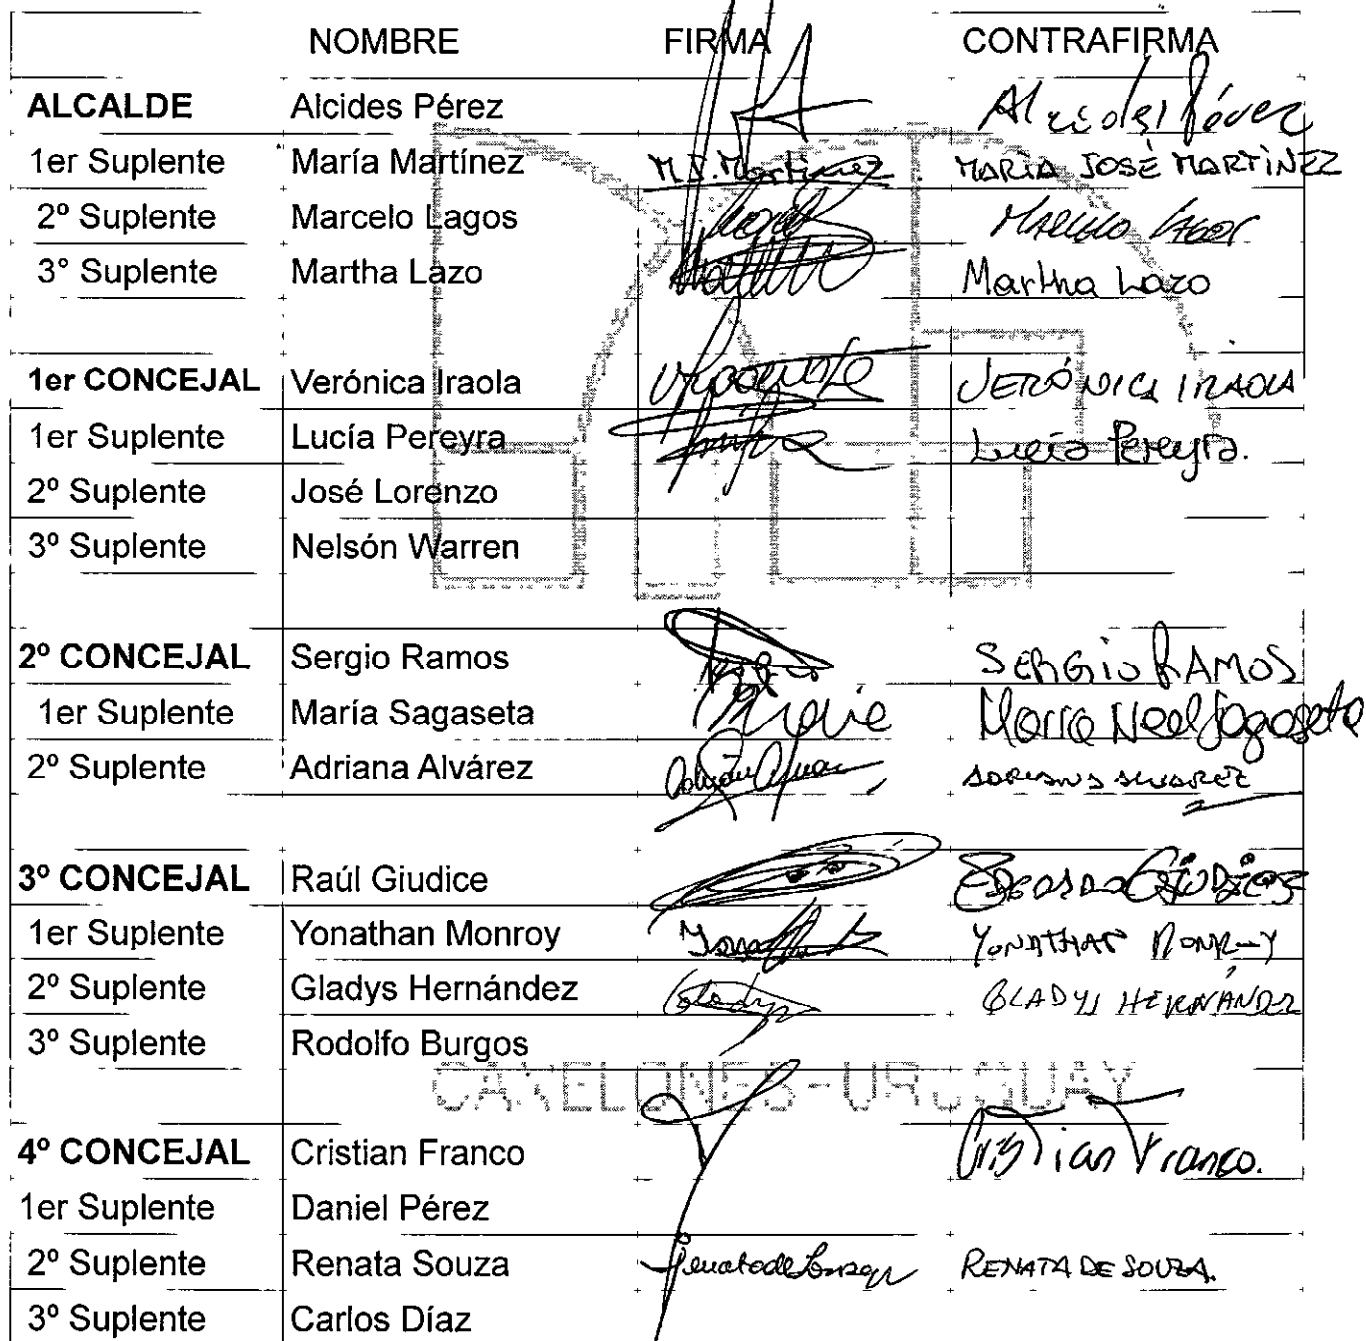 NOMBRE FIRMA CONTRAFIRMA
ALCALDE Alcides Pérez Alcides Pérez
1er Suplente María Martínez M.J. Martinez MARÍA JOSÉ MARTÍNEZ
2º Suplente Marcelo Lagos
3° Suplente Martha Lazo Martha Lazo
1er CONCEJAL Verónica Iraola VERÓNICA IRAOLA
1er Suplente Lucía Pereyra Lucía Pereyra.
2º Suplente José Lorenzo
3º Suplente Nelsón Warren
2º CONCEJAL Sergio Ramos SERGIO RAMOS
1er Suplente María Sagaseta María Noel Sagaseta
2º Suplente Adriana Alvárez ADRIANA ALVAREZ
3º CONCEJAL Raúl Giudice GIUDICE
1er Suplente Yonathan Monroy YONATHAN MONROY
2º Suplente Gladys Hernández Gladys GLADYS HERNÁNDEZ
3º Suplente Rodolfo Burgos
CANELONES-URUGUAY
4º CONCEJAL Cristian Franco Cristian Franco.
1er Suplente Daniel Pérez
2º Suplente Renata Souza Renata de Souza RENATA DE SOUZA.
3º Suplente Carlos Díaz